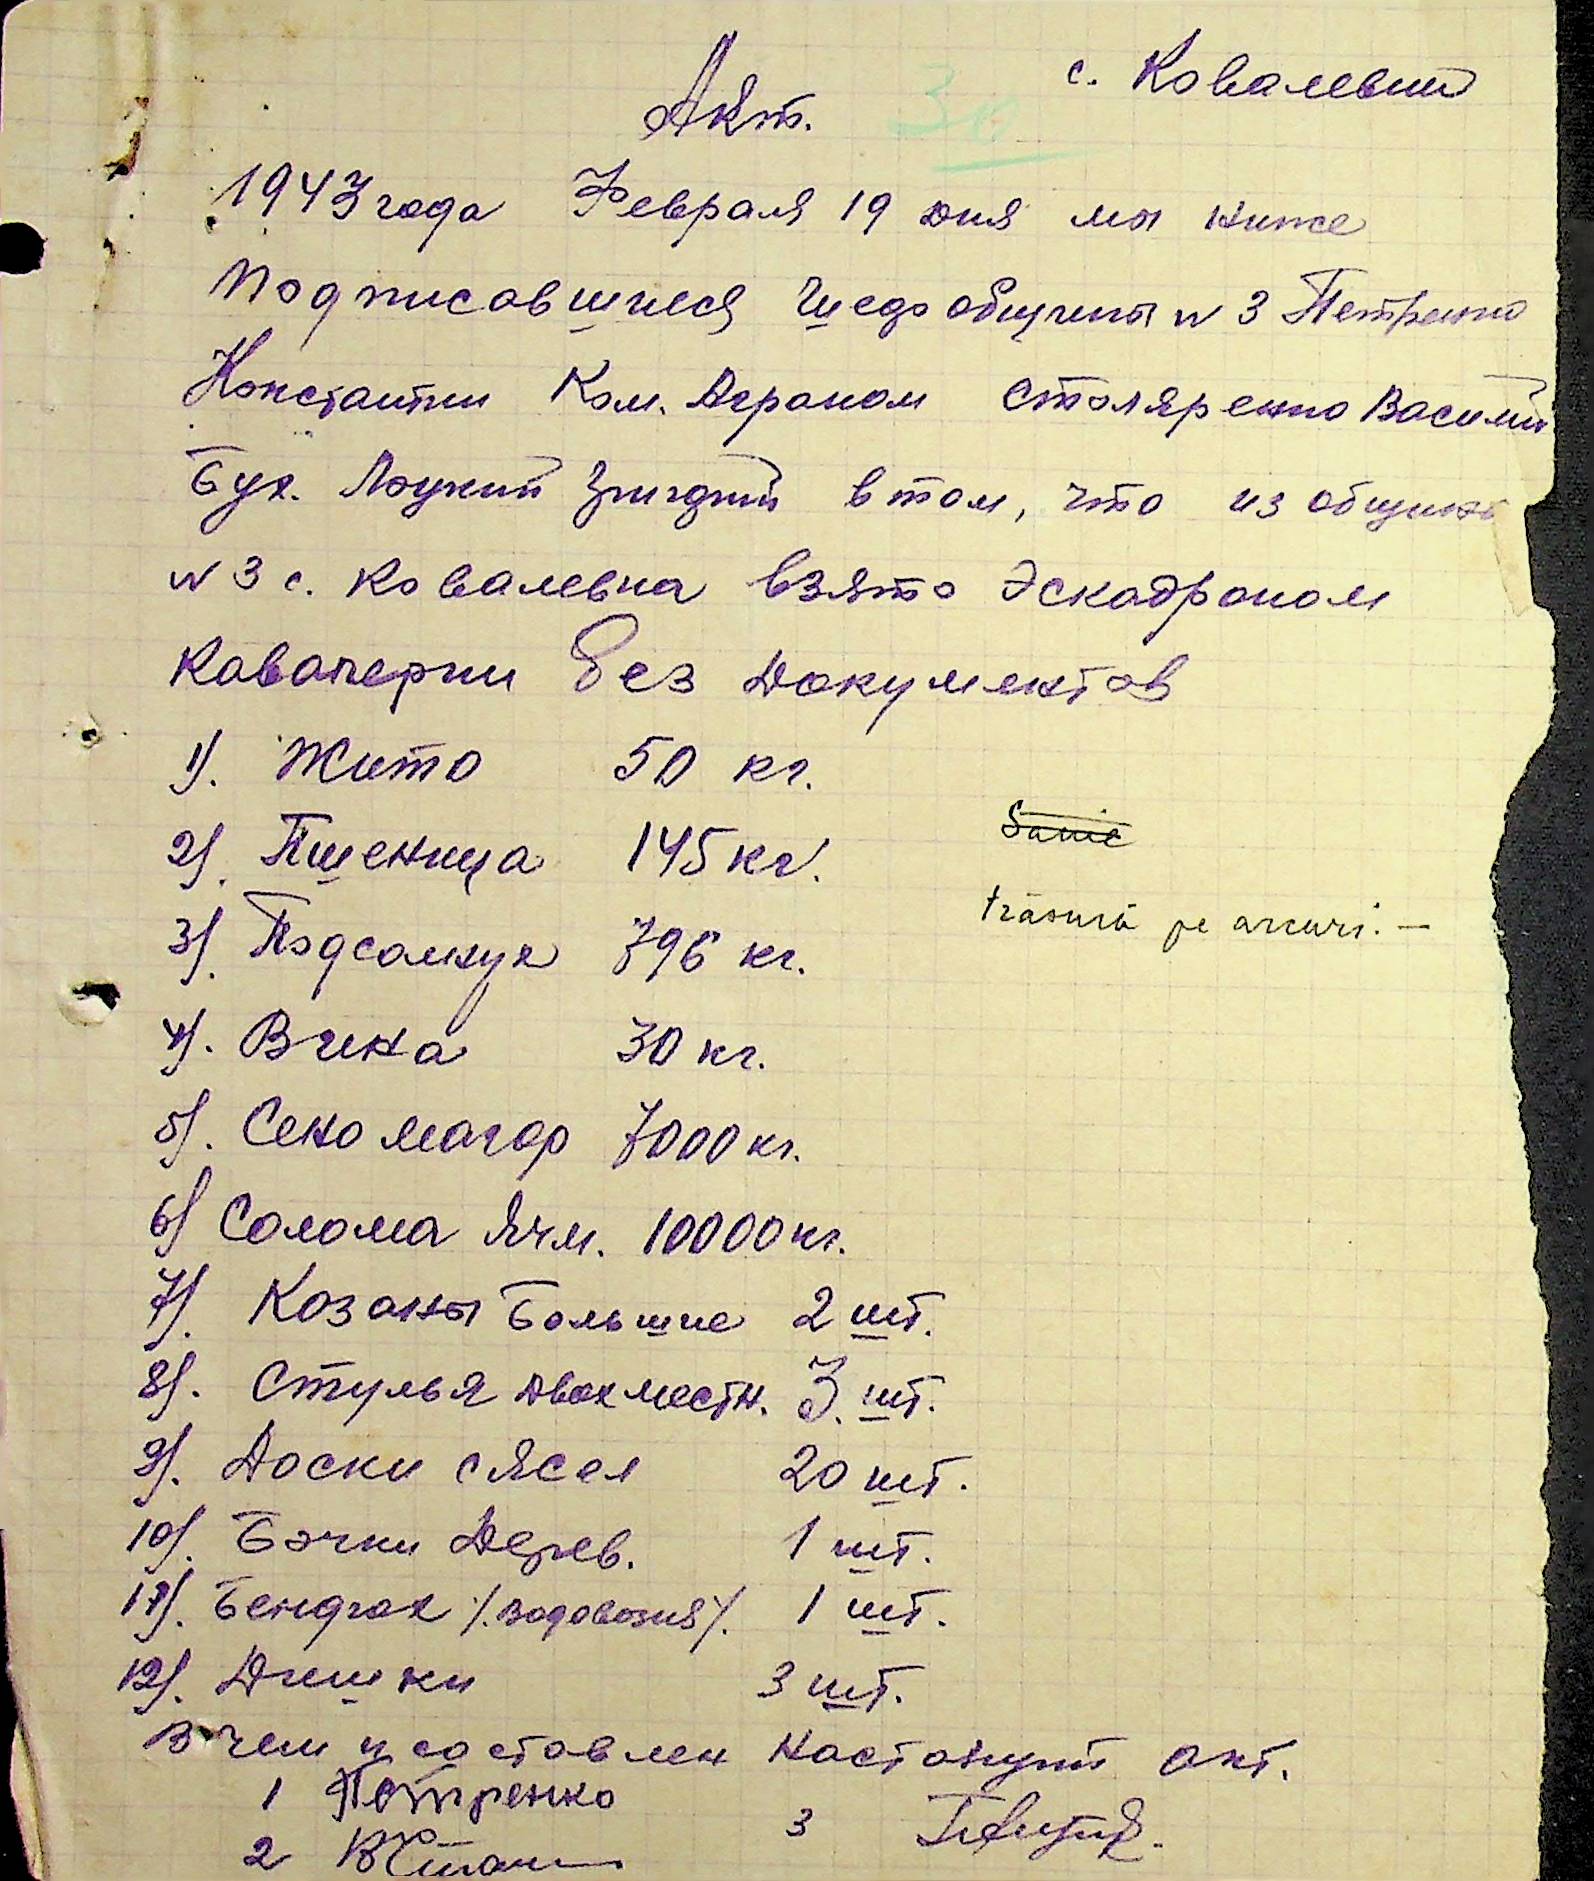 с. Ковалевки
Акт.
1943 года Февраля 19 дня мы ниже
Подписавшиеся общины № 3 Петренко
Константин Ком. Агроном Столяренко Василий
Бух. Лоцкий в том, что из общины
№ 3 с. Ковалевка взято Эскадроном
Кавалерии без документов
1). Жито 50 кг.
2). Пшеница 145 кг.
Sanie
3). Подсолнух 796 кг.
trăsură pe arcuri. —
4). Вика 30 кг.
5). Сено могар 7000 кг.
6) Солома Ячм. 10000 кг.
7). Козаны Большие 2 шт.
8). Стулья двохместн. 3 шт.
9). Доски с ясел 20 шт.
10). Бочки Дерев. 1 шт.
11). Бендюх /.водовозня/. 1 шт.
12). Дишки 3 шт.
В чем и составлен настоящий акт.
1 Петренко
3
2